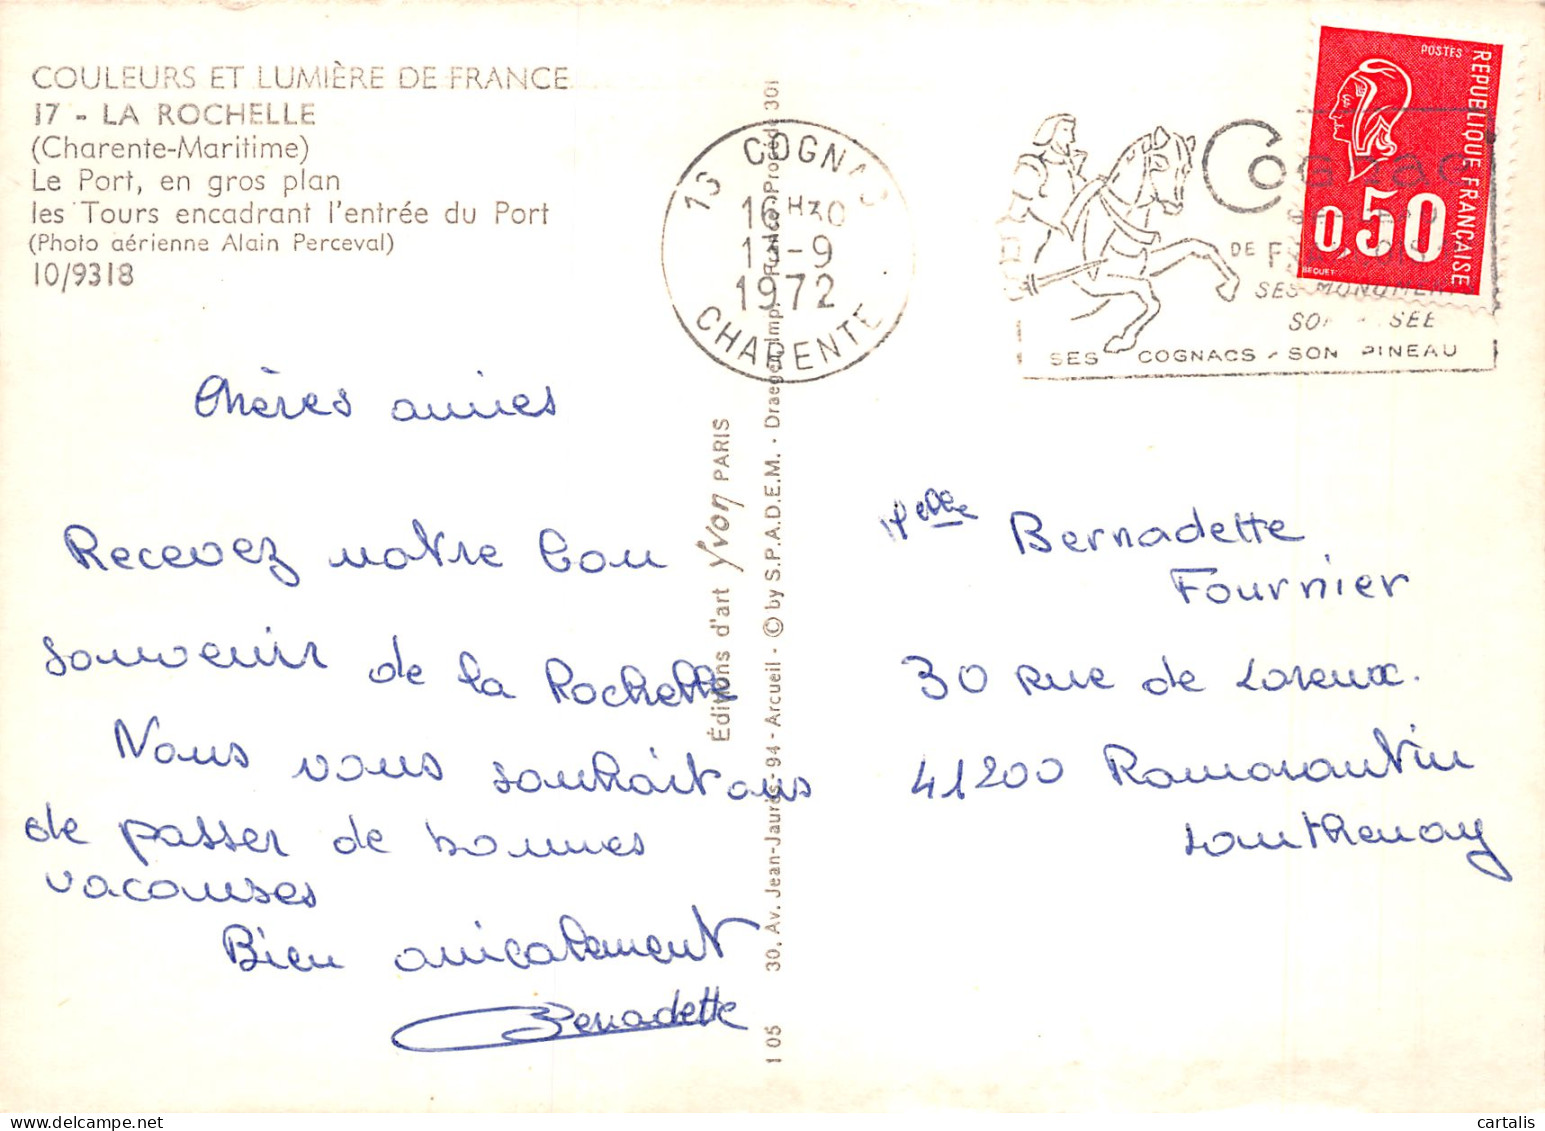 COULEURS ET LUMIÈRE DE FRANCE
17 - LA ROCHELLE
(Charente-Maritime)
Le Port, en gros plan
les Tours encadrant l'entrée du Port
(Photo aérienne Alain Perceval)
10/9318
16 COGNAC
16 H 30
1972
CHARENTE
Cognac
DE
SES MONUMEN
SES COGNACS - SON PINEAU
POSTES
REPUBLIQUE FRANÇAISE
0,50
BEQUET
Chères amies
Recevez notre bon
souvenir de la Rochelle
Nous vous souhaitons
de passer de bonnes
vacances
Bien amicalement
Bernadette
Éditions d'art Yvon PARIS
30, Av. Jean-Jaurès-94 - Arcueil - © by S.P.A.D.E.M. - Draeger, imp.
105
Melle Bernadette
Fournier
30 rue de Loreux.
41200 Romorantin
Lanthenay
cartalis